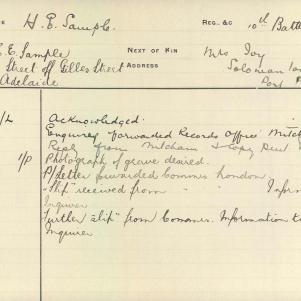 H. E. Sample.
REG. &C 10th Batta
E. Sample
NEXT OF KIN
Mrs Ivy
Street off Gilles Street
ADDRESS
Adelaide
Port
Acknowledged.
Enquiry forwarded Records Office Mitch
Reply from Mitcham & copy sent
1/P Photograph of grave desired.
P/Letter forwarded Commrs London
"Slip" received from " Inform
Inquirer
Further "slip" from Commrs. Information to
Inquirer